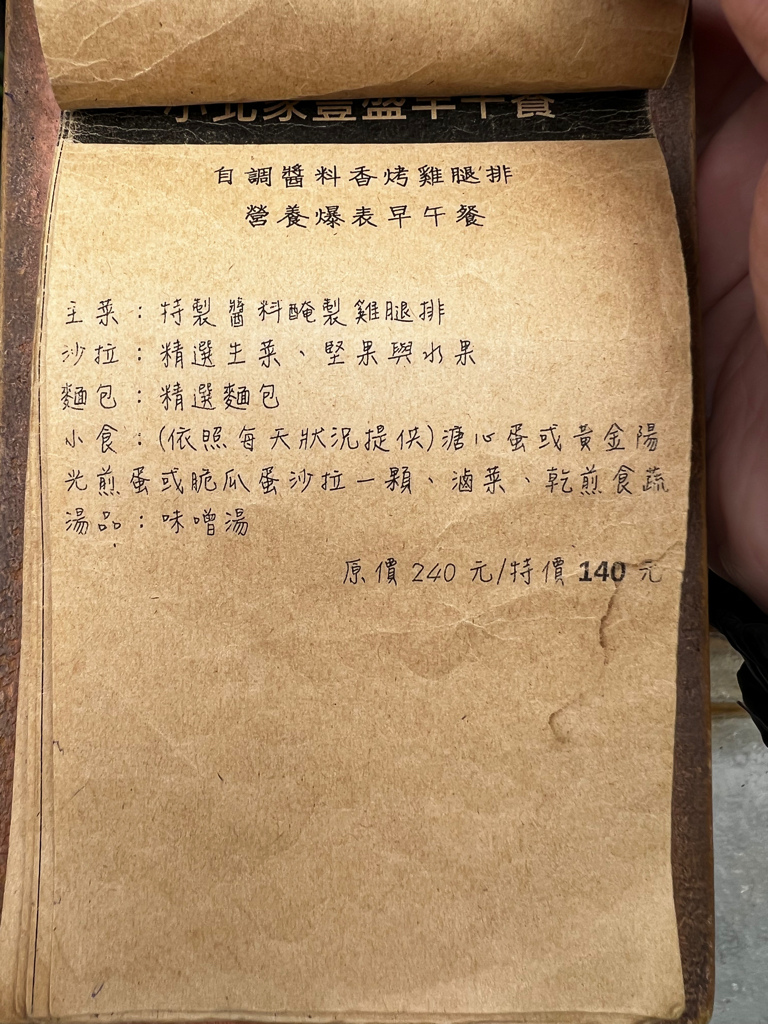 小北家豐盛早午餐
自調醬料香烤雞腿排
營養爆表早午餐
主菜：特製醬料醃製雞腿排
沙拉：精選生菜、堅果與水果
麵包：精選麵包
小食：(依照每天狀況提供)溏心蛋或黃金陽
光煎蛋或脆瓜蛋沙拉一顆、滷菜、乾煎食蔬
湯品：味噌湯
原價 240 元/特價 140 元